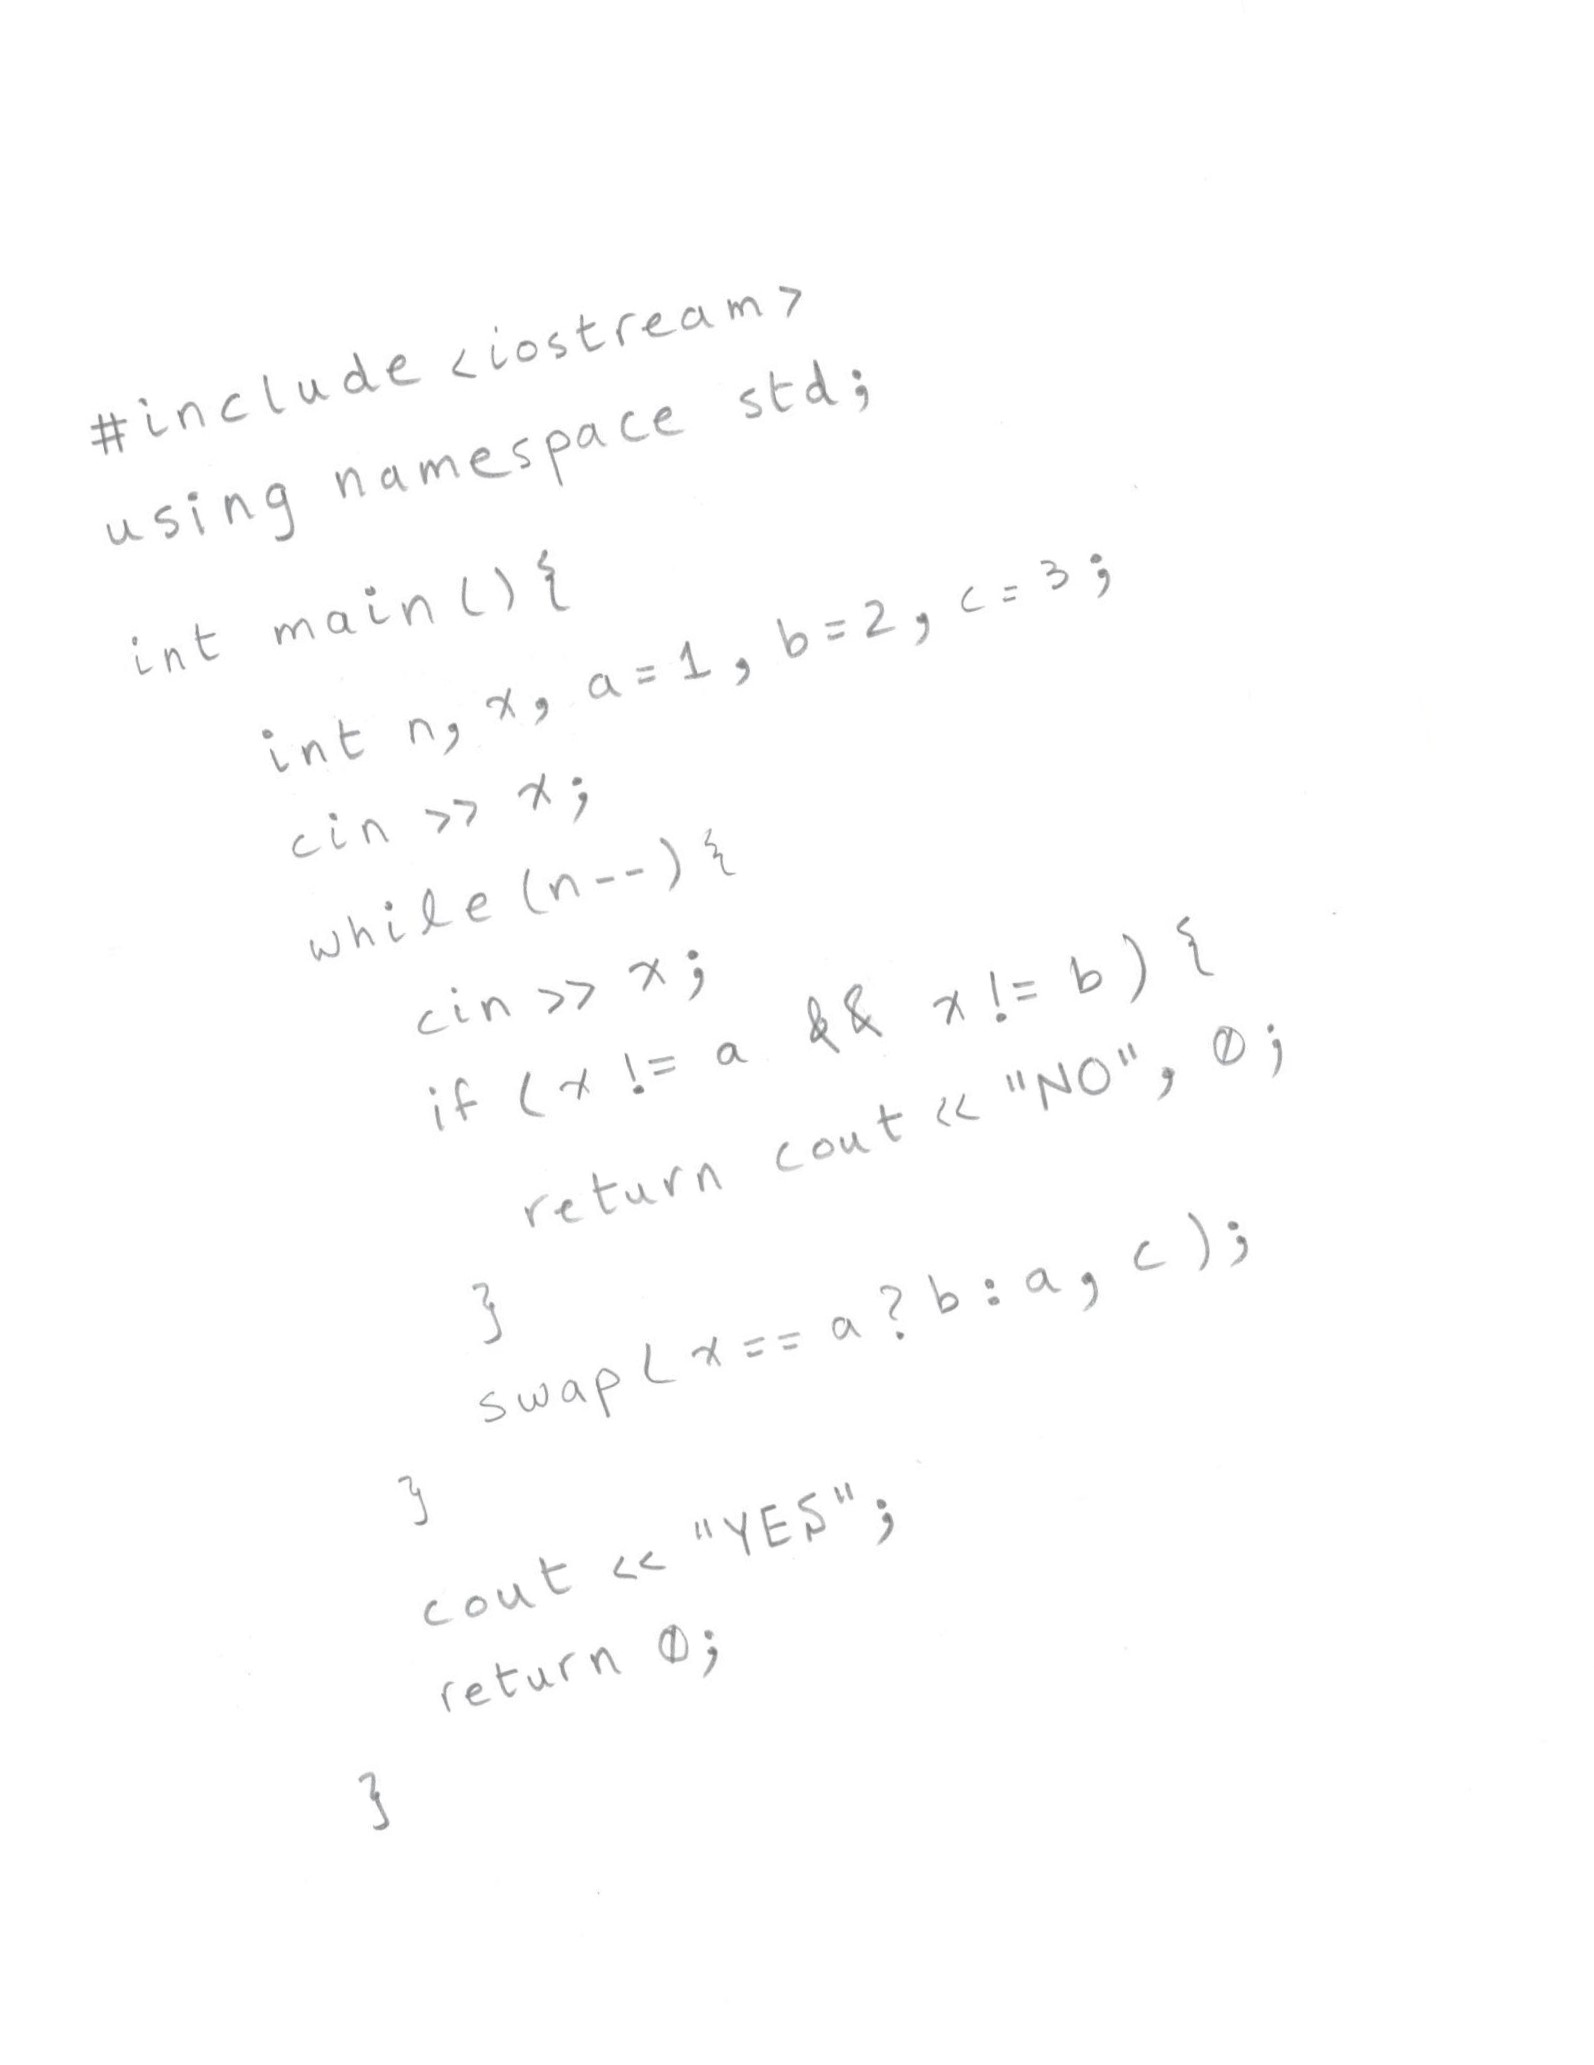 #include <iostream>
using namespace std;
int main(){
int n, x, a=1, b=2, c=3;
cin >> x;
while(n--){
cin >> x;
if (x != a && x != b) {
return cout << "NO", 0;
}
swap(x == a ? b : a, c);
}
cout << "YES";
return 0;
}